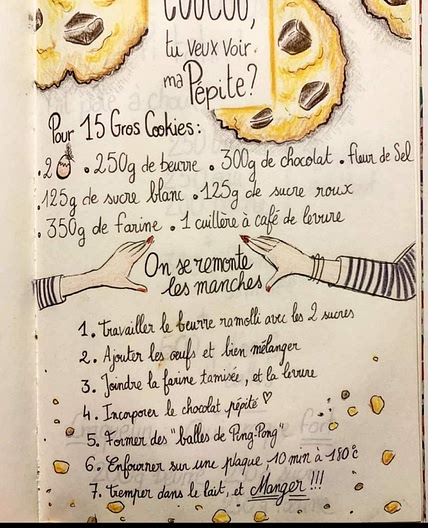 COUCOU,
tu veux voir
ma Pépite?
Pour 15 Gros Cookies:
. 2 . 250g de beurre . 300g de chocolat . fleur de Sel
. 125g de sucre blanc . 125g de sucre roux
. 350g de farine . 1 cuillère à café de levure
On se remonte
les manches
1. Travailler le beurre ramolli avec les 2 sucres
2. Ajouter les œufs et bien mélanger
3. Joindre la farine tamisée, et la levure
4. Incorporer le chocolat pépité ♡
5. Former des "balles de Ping-Pong"
6. Enfourner sur une plaque, 10 min à 180°c
7. Tremper dans le lait, et Manger !!!